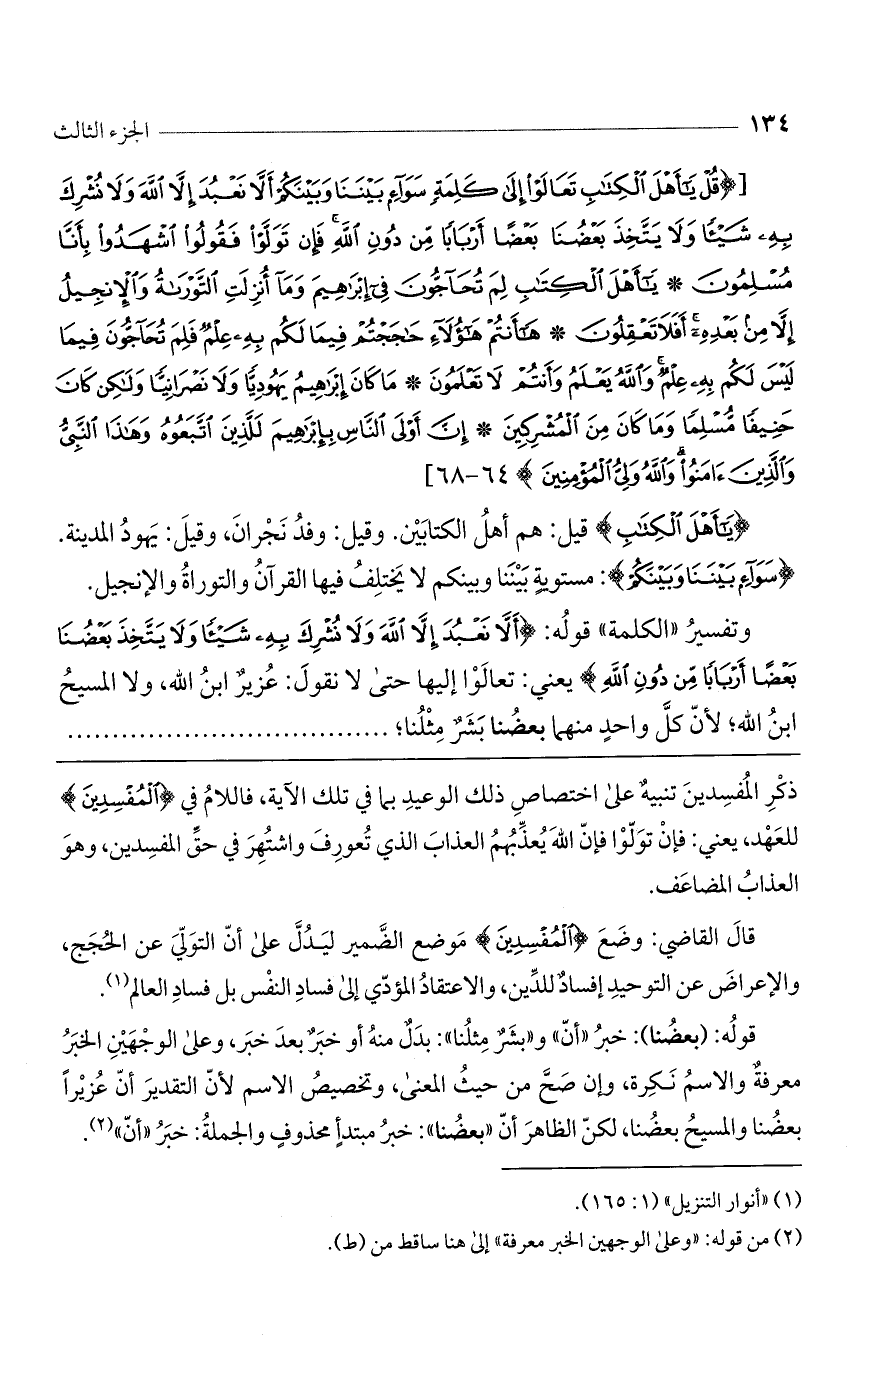 ١٣٤ ــــــــــ الجزء الثالث
[﴿قُلْ يَٰٓأَهْلَ ٱلْكِتَٰبِ تَعَالَوْا۟ إِلَىٰ كَلِمَةٍ سَوَآءٍۭ بَيْنَنَا وَبَيْنَكُمْ أَلَّا نَعْبُدَ إِلَّا ٱللَّهَ وَلَا نُشْرِكَ
بِهِۦ شَيْـًٔا وَلَا يَتَّخِذَ بَعْضُنَا بَعْضًا أَرْبَابًا مِّن دُونِ ٱللَّهِ ۚ فَإِن تَوَلَّوْا۟ فَقُولُوا۟ ٱشْهَدُوا۟ بِأَنَّا
مُسْلِمُونَ * يَٰٓأَهْلَ ٱلْكِتَٰبِ لِمَ تُحَآجُّونَ فِىٓ إِبْرَٰهِيمَ وَمَآ أُنزِلَتِ ٱلتَّوْرَىٰةُ وَٱلْإِنجِيلُ
إِلَّا مِنۢ بَعْدِهِۦٓ ۚ أَفَلَا تَعْقِلُونَ * هَٰٓأَنتُمْ هَٰٓؤُلَآءِ حَٰجَجْتُمْ فِيمَا لَكُم بِهِۦ عِلْمٌ فَلِمَ تُحَآجُّونَ فِيمَا
لَيْسَ لَكُم بِهِۦ عِلْمٌ ۚ وَٱللَّهُ يَعْلَمُ وَأَنتُمْ لَا تَعْلَمُونَ * مَا كَانَ إِبْرَٰهِيمُ يَهُودِيًّا وَلَا نَصْرَانِيًّا وَلَٰكِن كَانَ
حَنِيفًا مُّسْلِمًا وَمَا كَانَ مِنَ ٱلْمُشْرِكِينَ * إِنَّ أَوْلَى ٱلنَّاسِ بِإِبْرَٰهِيمَ لَلَّذِينَ ٱتَّبَعُوهُ وَهَٰذَا ٱلنَّبِىُّ
وَٱلَّذِينَ ءَامَنُوا۟ ۗ وَٱللَّهُ وَلِىُّ ٱلْمُؤْمِنِينَ﴾ ٦٤-٦٨]
﴿يَٰٓأَهْلَ ٱلْكِتَٰبِ﴾ قيل: هم أهلُ الكتابَيْن. وقيل: وفدُ نَجْرانَ، وقيلَ: يَهودُ المدينة.
﴿سَوَآءٍۭ بَيْنَنَا وَبَيْنَكُمْ﴾: مستويةٍ بيْنَنا وبينكم لا يَختلِفُ فيها القرآنُ والتوراةُ والإنجيل.
وتفسيرُ «الكلمة» قولُه: ﴿أَلَّا نَعْبُدَ إِلَّا ٱللَّهَ وَلَا نُشْرِكَ بِهِۦ شَيْـًٔا وَلَا يَتَّخِذَ بَعْضُنَا
بَعْضًا أَرْبَابًا مِّن دُونِ ٱللَّهِ﴾ يعني: تعالَوْا إليها حتىٰ لا نقولَ: عُزيرٌ ابنُ الله، ولا المسيحُ
ابنُ الله؛ لأنّ كلَّ واحدٍ منهما بعضُنا بَشَرٌ مِثْلُنا؛ ....................................
ذكْرِ المُفسِدينَ تنبيهٌ علىٰ اختصاصِ ذلك الوعيدِ بما في تلك الآية، فاللامُ في ﴿ٱلْمُفْسِدِينَ﴾
للعَهْد، يعني: فإنْ تولّوْا فإنّ اللهَ يُعذِّبُهُمُ العذابَ الذي تُعورِفَ واشتُهِرَ في حقِّ المفسِدين، وهوَ
العذابُ المضاعَف.
قالَ القاضي: وضَعَ ﴿ٱلْمُفْسِدِينَ﴾ مَوضع الضَّمير ليَدُلَّ علىٰ أنّ التولّيَ عن الحُجَج،
والإعراضَ عن التوحيدِ إفسادٌ للدِّين، والاعتقادُ المؤدّي إلىٰ فسادِ النفْس بل فسادِ العالم(١).
قولُه: (بعضُنا): خبرُ «أنّ» و«بشَرٌ مِثلُنا»: بدَلٌ منهُ أو خبَرٌ بعدَ خبَر، وعلىٰ الوجْهَيْنِ الخبَرُ
معرفةٌ والاسمُ نَكِرة، وإن صَحَّ من حيثُ المعنىٰ، وتخصيصُ الاسم لأنّ التقديرَ أنّ عُزيْراً
بعضُنا والمسيحُ بعضُنا، لكنّ الظاهرَ أنّ «بعضُنا»: خبرُ مبتدأٍ محذوفٍ والجملةُ: خبَرُ «أنّ»(٢).
(١) «أنوار التنزيل» (١: ١٦٥).
(٢) من قوله: «وعلىٰ الوجهين الخبر معرفة» إلىٰ هنا ساقط من (ط).